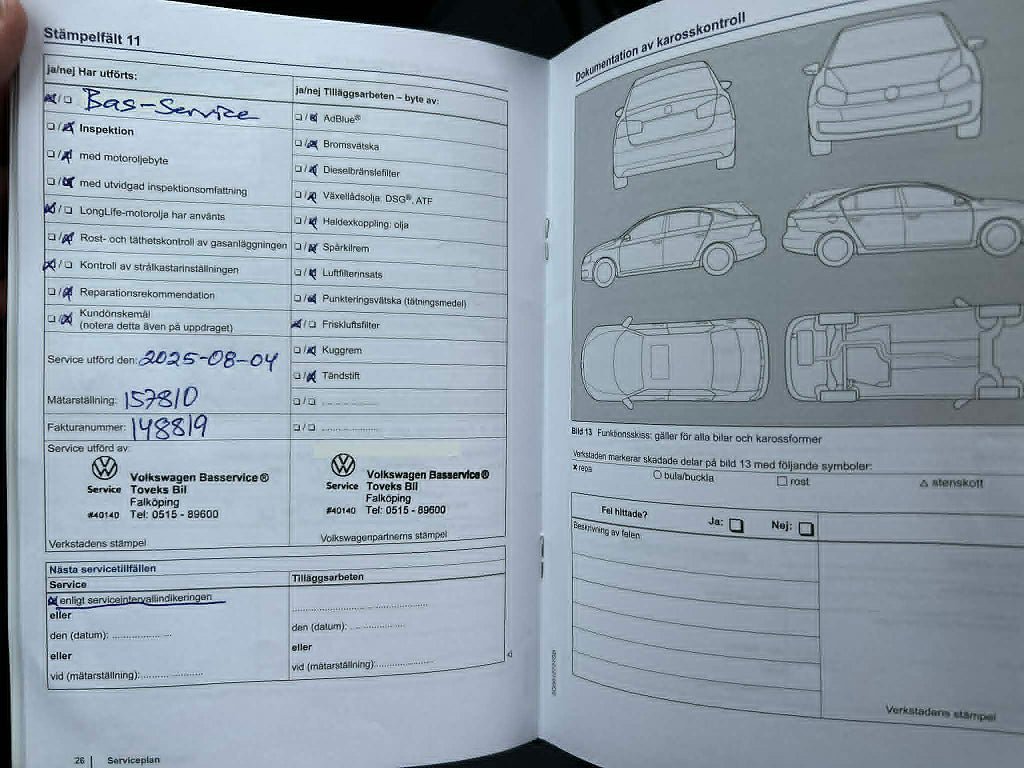 Stämpelfält 11
ja/nej Har utförts:
Bas-Service
Inspektion
med motoroljebyte
med utvidgad inspektionsomfattning
LongLife-motorolja har använts
Rost- och täthetskontroll av gasanläggningen
Kontroll av strålkastarinställningen
Reparationsrekommendation
Kundönskemål
(notera detta även på uppdraget)
Service utförd den: 2025-08-04
Mätarställning: 157810
Fakturanummer: 148819
Service utförd av:
Service
#40140
Volkswagen Basservice®
Toveks Bil
Falköping
Tel: 0515 - 89600
Verkstadens stämpel
ja/nej Tilläggsarbeten – byte av:
AdBlue®
Bromsvätska
Dieselbränslefilter
Växellådsolja: DSG®, ATF
Haldexkoppling: olja
Spårkilrem
Luftfilterinsats
Punkteringsvätska (tätningsmedel)
Friskluftsfilter
Kuggrem
Tändstift
Service
#40140
Volkswagen Basservice®
Toveks Bil
Falköping
Tel: 0515 - 89600
Volkswagenpartnerns stämpel
Nästa servicetillfällen
Service
enligt serviceintervallindikeringen
eller
den (datum):
eller
vid (mätarställning):
Tilläggsarbeten
den (datum):
eller
vid (mätarställning):
26 | Serviceplan
Dokumentation av karosskontroll
Bild 13 Funktionsskiss: gäller för alla bilar och karossformer
Verkstaden markerar skadade delar på bild 13 med följande symboler:
x repa
○ bula/buckla
□ rost
△ stenskott
Fel hittade?
Ja: □
Nej: □
Beskrivning av felen:
Verkstadens stämpel